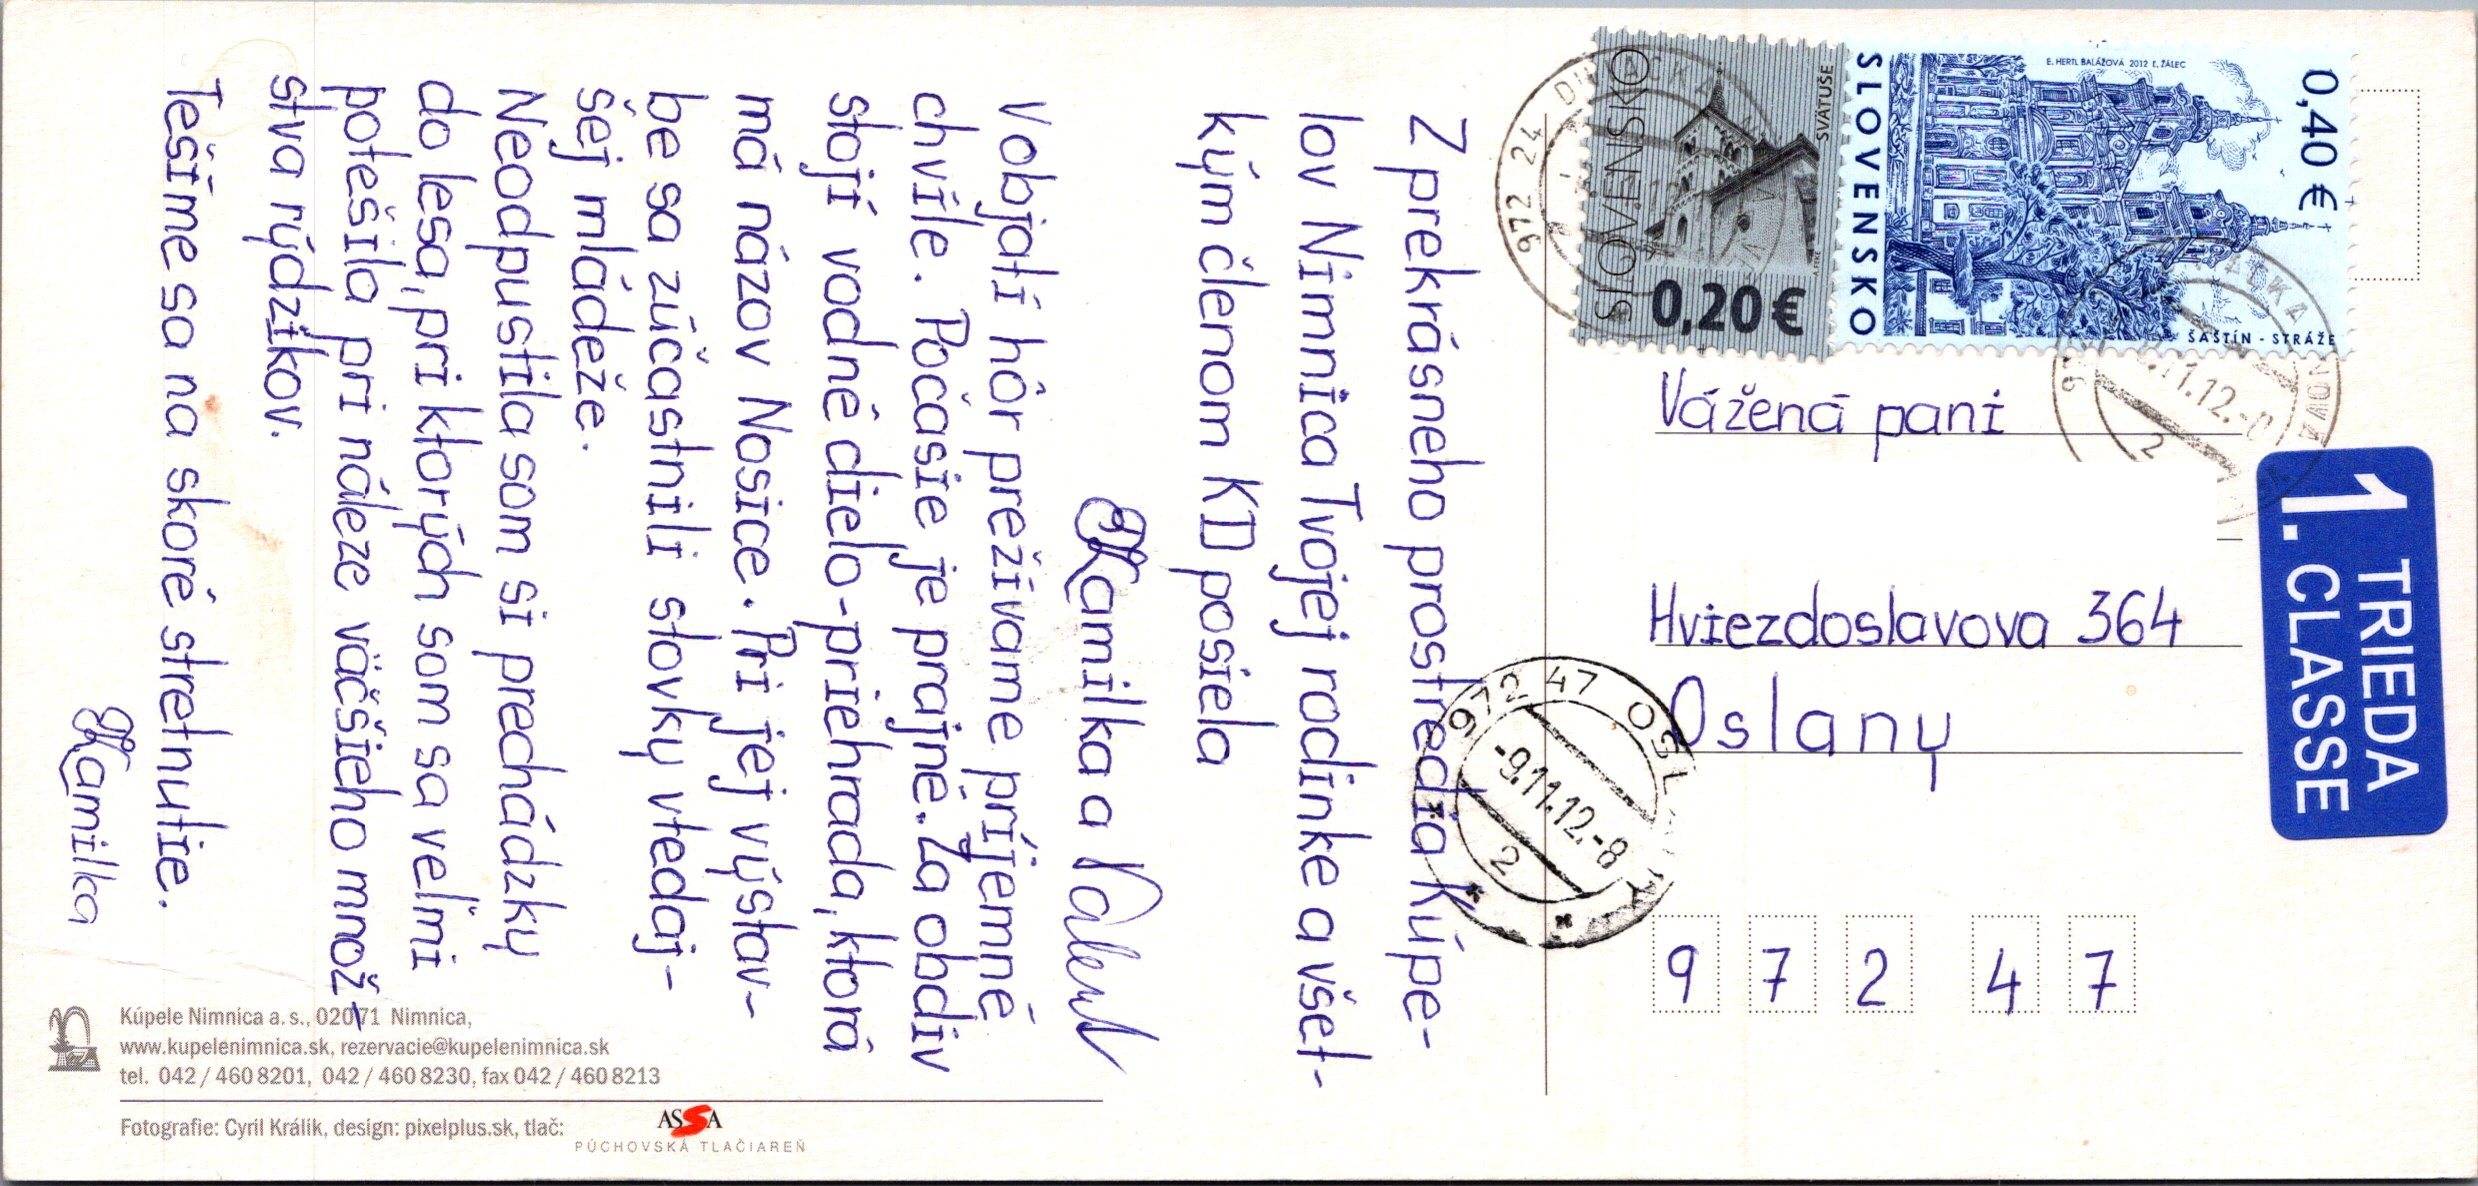 Z prekrásneho prostredia Kúpe-
lov Nimnica Tvojej rodinke a všet-
kým členom KD posiela
Kamilka a
V objatí hôr prežívame príjemné
chvíle. Počasie je prajné. Za obdiv
stojí vodné dielo-priehrada, ktorá
má názov Nosice. Pri jej výstav-
be sa zúčastnili stovky vtedaj-
šej mládeže.
Neodpustila som si prechádzky
do lesa, pri ktorých som sa veľmi
potešila pri náleze väčšieho množ-
stva rýdzikov.
Tešíme sa na skoré stretnutie.
Kamilka
SLOVENSKO
SVÄTUŠE
0,20 €
SLOVENSKO
E. HERTL BALÁŽOVÁ 2012 Ľ. ŽÁLEC
0,40 €
ŠAŠTÍN - STRÁŽE
972 24
11.12.-8
2
1. TRIEDA
CLASSE
Vážená pani
Hviezdoslavova 364
Oslany
972 47 OSLANY
-9.11.12.-8
2
9 7 2 4 7
Kúpele Nimnica a. s., 020 71 Nimnica,
www.kupelenimnica.sk, rezervacie@kupelenimnica.sk
tel. 042 / 460 8201, 042 / 460 8230, fax 042 / 460 8213
Fotografie: Cyril Králik, design: pixelplus.sk, tlač:
ASSA
PÚCHOVSKÁ TLAČIAREŇ